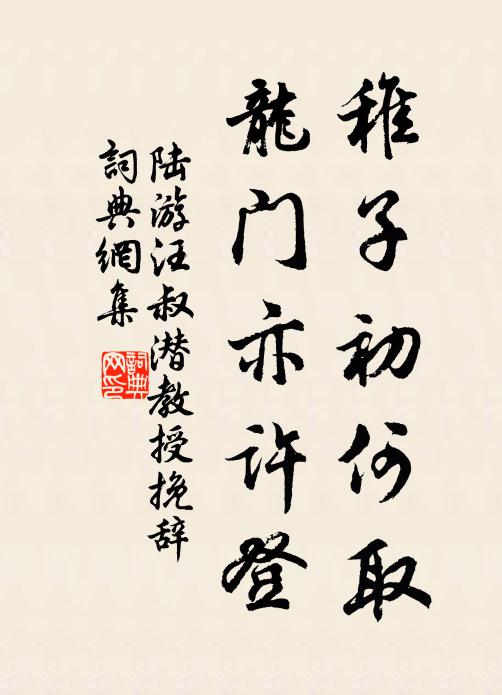 稚子初何取
龍门亦许登
陆游汪叔潜教授挽辞
詞典網集
詞典网印